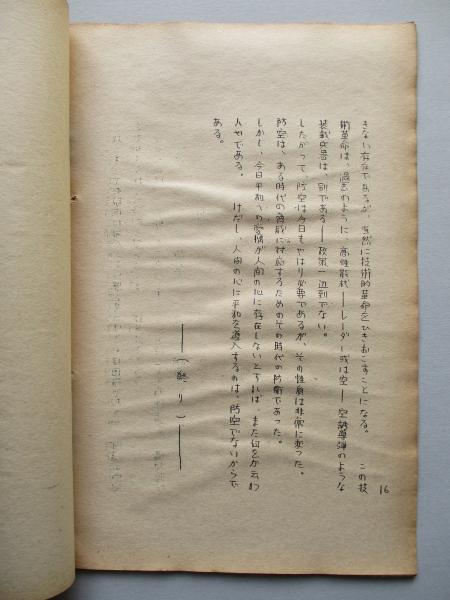 きない存在であるが、当然に技術的革命をひきおこすことになる。 この技
術革命は、過去のように 高性能
レーダー或は空 — 空誘導弾のような
装載兵器は、別である — 政策一辺到でない。
したがって、防空は今日もやはり必要であるが、その性質は非常に変った。
防空は、ある時代の脅威に対応するためのその時代の防衛であった。
しかし、今日平和への愛情が人間の心に存在しないとすれば、また何をか云わ
んやである。 けだし、人間の心に平和を導入するのは、防空でないからで
ある。
——(終り)——
16